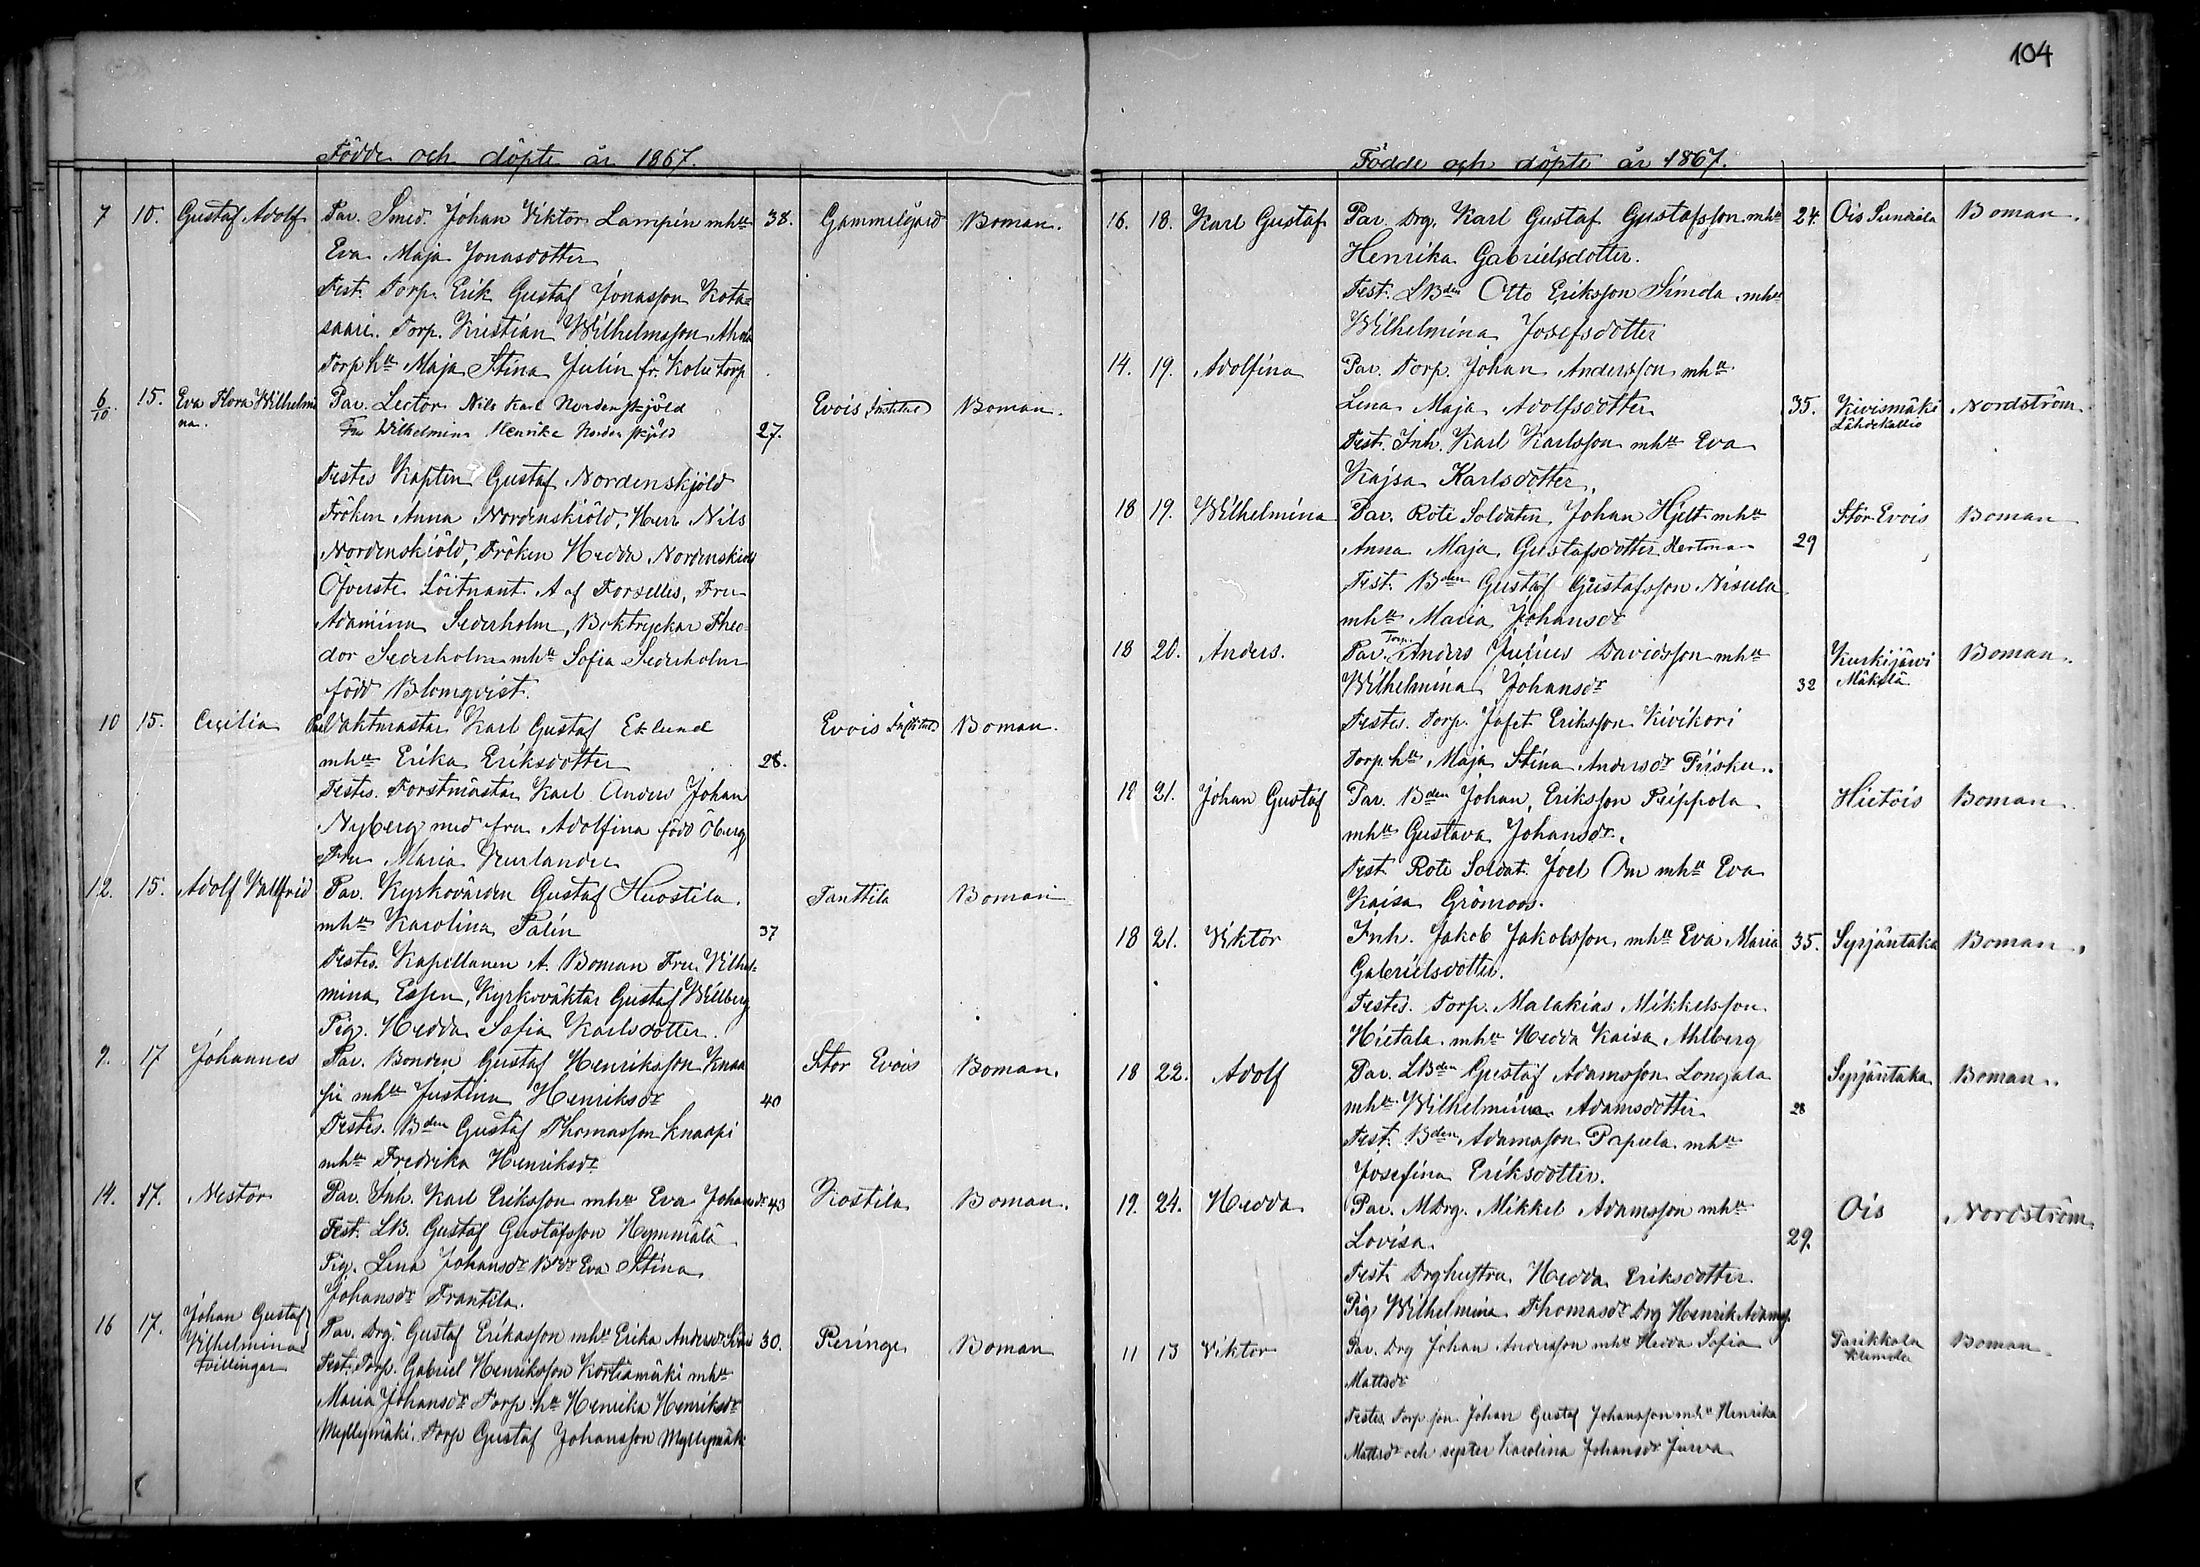 104
Födde och döpte år 1867.
7 10. Gustaf Adolf Par. Smed. Johan Viktor Lampén mhu 38. Gammelgård Boman.
Eva Maja Jonasdotter
Test. Torp. Erik Gustaf Jonasson Kota-
saari. Torp. Kristian Wilhelmsson
Torp hu Maja Stina Julin fr. Kolu torp
6/10 15. Eva Flora Wilhelmi Par. Lector Nils Karl Nordenskjöld Evois Institut Boman.
na. Fru Wilhelmina Henrika Nordenskjöld 27.
Testes Kapten Gustaf Nordenskjöld
Fröken Anna Nordenskiöld, Herr Nils
Nordenskiöld, Fröken Hedda Nordenskiöld
Öfverste Löitnant A af Forselles, Fru
Adamina Sederholm, Boktryckar Theo-
dor Sederholm mhu Sofia Sederholm
född Blomqvist.
10 15. Cecilia Par. Vaktmästar Karl Gustaf Eklund Evois Institut Boman.
mhu Erika Eriksdotter 28.
Testes. Forstmästar Karl Anders Johan
Nyberg med fru Adolfina född Öberg
Fru Maria
12. 15. Adolf Vallfrid Par. Kyrkovärden Gustaf Huostila Tanttila Boman
mhu Karolina Palin 37
Testes. Kapellanen A. Boman Fru Vilhel-
mina Essen, Kyrkoväktar Gustaf Willberg
Pig. Hedda Sofia Karlsdotter.
9. 17 Johannes Par. Bonden Gustaf Henriksson Knaa Stor Evois Boman.
pi mhu Justina Henriksdr 40
Testes. Bden Gustaf Thomasson Knaapi
mhu Fredrika Henriksdr
14. 17. Nestor Par. Inh. Karl Eriksson mhu Eva Johansdr 43 Kostila Boman.
Test. LB. Gustaf Gustafsson Hymmälä
Pig. Lena Johansdr Bdr Eva Stina
Johansdr Frantila.
16 17. Johan Gustaf Par. Drg. Gustaf Eriksson mhu Erika Andersdr 30. Peringe Boman
Vilhelmina Test. Torp. Gabriel Henriksson Kortiamäki mhu
tvillingar Maria Johansdr Torp. hu Henrika Henriksdr
Myllymäki. Torp Gustaf Johansson Myllymäki
Födde och döpte år 1867.
16. 18. Karl Gustaf Par. Drg. Karl Gustaf Gustafsson mhu 24. Ois Boman.
Henrika Gabrielsdotter.
Test. LBden Otto Eriksson Simola mhu
Wilhelmina Josefsdotter
14. 19. Adolfina Par. Torp. Johan Andersson mhu
Lena Maja Adolfsdotter 35. Kivismäki Nordström.
Lähdekallio
Test. Inh. Karl Karlsson mhu Eva
Kajsa Karlsdotter.
18 19. Wilhelmina Par. Rote Soldaten Johan Hjelt mhu Stor Evois Boman
Anna Maja Gustafsdotter 29
Test. Bden Gustaf Gustafsson Nisula
mhu Maria Johansdr
18 20. Anders. Par. Torp. Anders Julius Davidsson mhu Kurkijärvi Boman.
Wilhelmina Johansdr 32 Mäkelä
Testes. Torp. Jafet Eriksson Kivikori
Torp. hu Maja Stina Andersdr
12 21. Johan Gustaf Par. Bden Johan Eriksson Peippola Hietois Boman.
mhu Gustava Johansdr.
Test Rote Soldat. Joel Om mhu Eva
Kaisa Grönroos.
18 21. Viktor Inh. Jakob Jakobsson mhu Eva Maria 35. Syrjäntaka Boman.
Gabrielsdotter.
Testes. Torp. Malakias Mikkelsson
Hietala mhu Hedda Kaisa Ahlberg
18 22. Adolf Par. LBden Gustaf Adamsson Longala Syrjäntaka Boman.
mhu Wilhelmina Adamsdotter 28
Test. Bden Adamsson Papula mhu
Josefina Eriksdotter.
19. 24. Hedda Par. MDrg. Mikkel Adamsson mhu Ois Nordström.
Lovisa. 29.
Test. Drghustru Hedda Eriksdotter
Pig Wilhelmina Thomasdr Drg Henrik Adams.
11 13 Viktor Par. Drg Johan Andersson mhu Hedda Sofia Parikkala Boman.
Klemola
Mattsdr
Testes Torp son Johan Gustaf Johansson mhu Henrika
Mattsdr och syster Karolina Johansdr Jurva